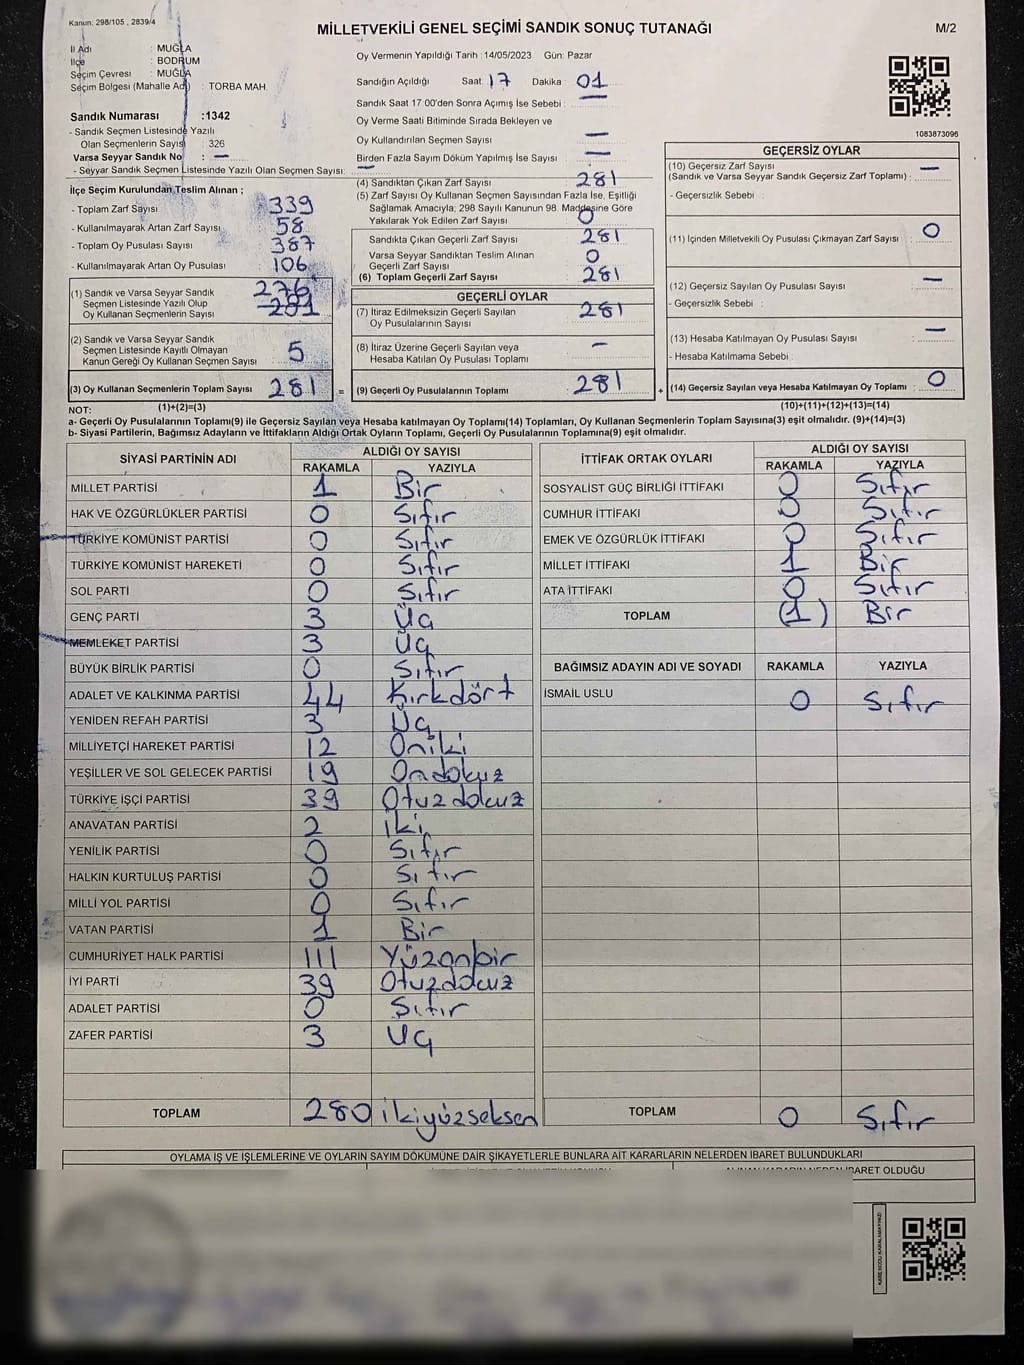 Kanun: 298/105 , 2839/4
MİLLETVEKİLİ GENEL SEÇİMİ SANDIK SONUÇ TUTANAĞI
M/2
İl Adı : MUĞLA
İlçe : BODRUM
Seçim Çevresi : MUĞLA
Seçim Bölgesi (Mahalle Adı) : TORBA MAH.
Sandık Numarası :1342
- Sandık Seçmen Listesinde Yazılı
Olan Seçmenlerin Sayısı : 326
Varsa Seyyar Sandık No : —
- Seyyar Sandık Seçmen Listesinde Yazılı Olan Seçmen Sayısı: —
Oy Vermenin Yapıldığı Tarih :14/05/2023 Gün: Pazar
Sandığın Açıldığı Saat 17 Dakika 01
Sandık Saat 17:00'den Sonra Açımış İse Sebebi : —
Oy Verme Saati Bitiminde Sırada Bekleyen ve
Oy Kullandırılan Seçmen Sayısı —
Birden Fazla Sayım Döküm Yapılmış İse Sayısı —
1083873096
İlçe Seçim Kurulundan Teslim Alınan ;
- Toplam Zarf Sayısı 339
- Kullanılmayarak Artan Zarf Sayısı 58
- Toplam Oy Pusulası Sayısı 387
- Kullanılmayarak Artan Oy Pusulası 106
(1) Sandık ve Varsa Seyyar Sandık
Seçmen Listesinde Yazılı Olup
Oy Kullanan Seçmenlerin Sayısı 276 281
(2) Sandık ve Varsa Seyyar Sandık
Seçmen Listesinde Kayıtlı Olmayan
Kanun Gereği Oy Kullanan Seçmen Sayısı 5
(3) Oy Kullanan Seçmenlerin Toplam Sayısı 281 =
(1)+(2)=(3)
(4) Sandıktan Çıkan Zarf Sayısı 281
(5) Zarf Sayısı Oy Kullanan Seçmen Sayısından Fazla İse, Eşitliği
Sağlamak Amacıyla, 298 Sayılı Kanunun 98. Maddesine Göre
Yakılarak Yok Edilen Zarf Sayısı 0
Sandıkta Çıkan Geçerli Zarf Sayısı 281
Varsa Seyyar Sandıktan Teslim Alınan
Geçerli Zarf Sayısı 0
(6) Toplam Geçerli Zarf Sayısı 281
GEÇERLİ OYLAR
(7) İtiraz Edilmeksizin Geçerli Sayılan
Oy Pusulalarının Sayısı 281
(8) İtiraz Üzerine Geçerli Sayılan veya
Hesaba Katılan Oy Pusulası Toplamı —
(9) Geçerli Oy Pusulalarının Toplamı 281 +
GEÇERSİZ OYLAR
(10) Geçersiz Zarf Sayısı
(Sandık ve Varsa Seyyar Sandık Geçersiz Zarf Toplamı) : —
- Geçersizlik Sebebi :
(11) İçinden Milletvekili Oy Pusulası Çıkmayan Zarf Sayısı : 0
(12) Geçersiz Sayılan Oy Pusulası Sayısı : —
- Geçersizlik Sebebi :
(13) Hesaba Katılmayan Oy Pusulası Sayısı : —
- Hesaba Katılmama Sebebi :
(14) Geçersiz Sayılan veya Hesaba Katılmayan Oy Toplamı : 0
(10)+(11)+(12)+(13)=(14)
NOT:
a- Geçerli Oy Pusulalarının Toplamı(9) ile Geçersiz Sayılan veya Hesaba katılmayan Oy Toplamı(14) Toplamları, Oy Kullanan Seçmenlerin Toplam Sayısına(3) eşit olmalıdır. (9)+(14)=(3)
b- Siyasi Partilerin, Bağımsız Adayların ve İttifakların Aldığı Ortak Oyların Toplamı, Geçerli Oy Pusulalarının Toplamına(9) eşit olmalıdır.
SİYASİ PARTİNİN ADI ALDIĞI OY SAYISI
RAKAMLA YAZIYLA
MİLLET PARTİSİ 1 Bir
HAK VE ÖZGÜRLÜKLER PARTİSİ 0 Sıfır
TÜRKİYE KOMÜNİST PARTİSİ 0 Sıfır
TÜRKİYE KOMÜNİST HAREKETİ 0 Sıfır
SOL PARTİ 0 Sıfır
GENÇ PARTİ 3 Üç
MEMLEKET PARTİSİ 3 Üç
BÜYÜK BİRLİK PARTİSİ 0 Sıfır
ADALET VE KALKINMA PARTİSİ 44 Kırkdört
YENİDEN REFAH PARTİSİ 3 Üç
MİLLİYETÇİ HAREKET PARTİSİ 12 Oniki
YEŞİLLER VE SOL GELECEK PARTİSİ 19 Ondokuz
TÜRKİYE İŞÇİ PARTİSİ 39 Otuzdokuz
ANAVATAN PARTİSİ 2 İki
YENİLİK PARTİSİ 0 Sıfır
HALKIN KURTULUŞ PARTİSİ 0 Sıfır
MİLLİ YOL PARTİSİ 0 Sıfır
VATAN PARTİSİ 1 Bir
CUMHURİYET HALK PARTİSİ 111 Yüzonbir
İYİ PARTİ 39 Otuzdokuz
ADALET PARTİSİ 0 Sıfır
ZAFER PARTİSİ 3 Üç
TOPLAM 280 ikiyüzseksen
İTTİFAK ORTAK OYLARI ALDIĞI OY SAYISI
RAKAMLA YAZIYLA
SOSYALİST GÜÇ BİRLİĞİ İTTİFAKI 0 Sıfır
CUMHUR İTTİFAKI 0 Sıfır
EMEK VE ÖZGÜRLÜK İTTİFAKI 0 Sıfır
MİLLET İTTİFAKI 1 Bir
ATA İTTİFAKI 0 Sıfır
TOPLAM (1) Bir
BAĞIMSIZ ADAYIN ADI VE SOYADI RAKAMLA YAZIYLA
İSMAİL USLU 0 Sıfır
TOPLAM 0 Sıfır
OYLAMA İŞ VE İŞLEMLERİNE VE OYLARIN SAYIM DÖKÜMÜNE DAİR ŞİKAYETLERLE BUNLARA AİT KARARLARIN NELERDEN İBARET BULUNDUKLARI
İBARET OLDUĞU
KARE KODU KARALAMAYINIZ!